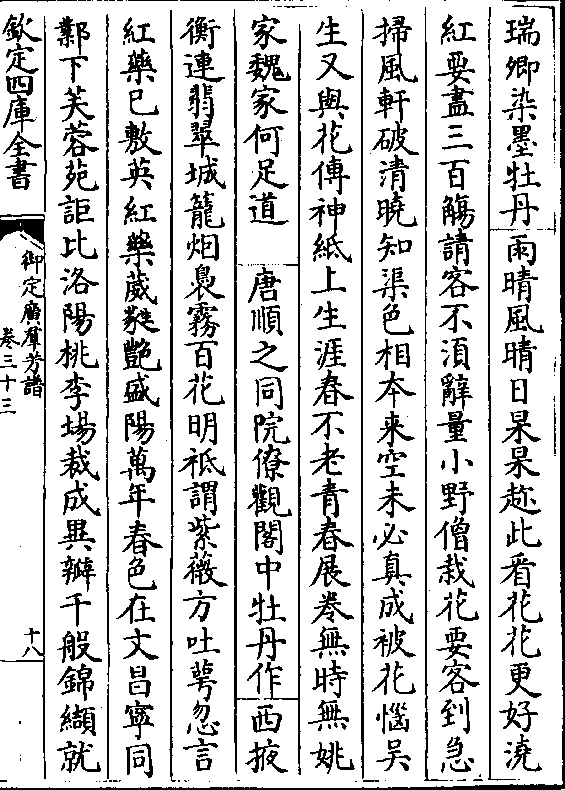 瑞卿染墨牡丹雨晴風晴日杲杲趂此看花花更好澆
紅要盡三百觴請客不湏辭量小野僧栽花要客到急
掃風軒破清曉知渠色相本来空未必真成被花惱吳
生又與花傳神紙上生涯春不老青春展卷無時無姚
家魏家何足道 唐順之同院僚觀閣中牡丹作西掖
衡連翡翠城籠烟裊霧百花明祗謂紫薇方吐萼忽言
紅藥已敷英紅藥葳蕤艷盛陽萬年春色在文昌寧同
鄴下芙蓉苑詎比洛陽桃李場裁成異瓣千般錦纈就
欽定四庫全書
御定廣羣芳譜
卷三十三
十八